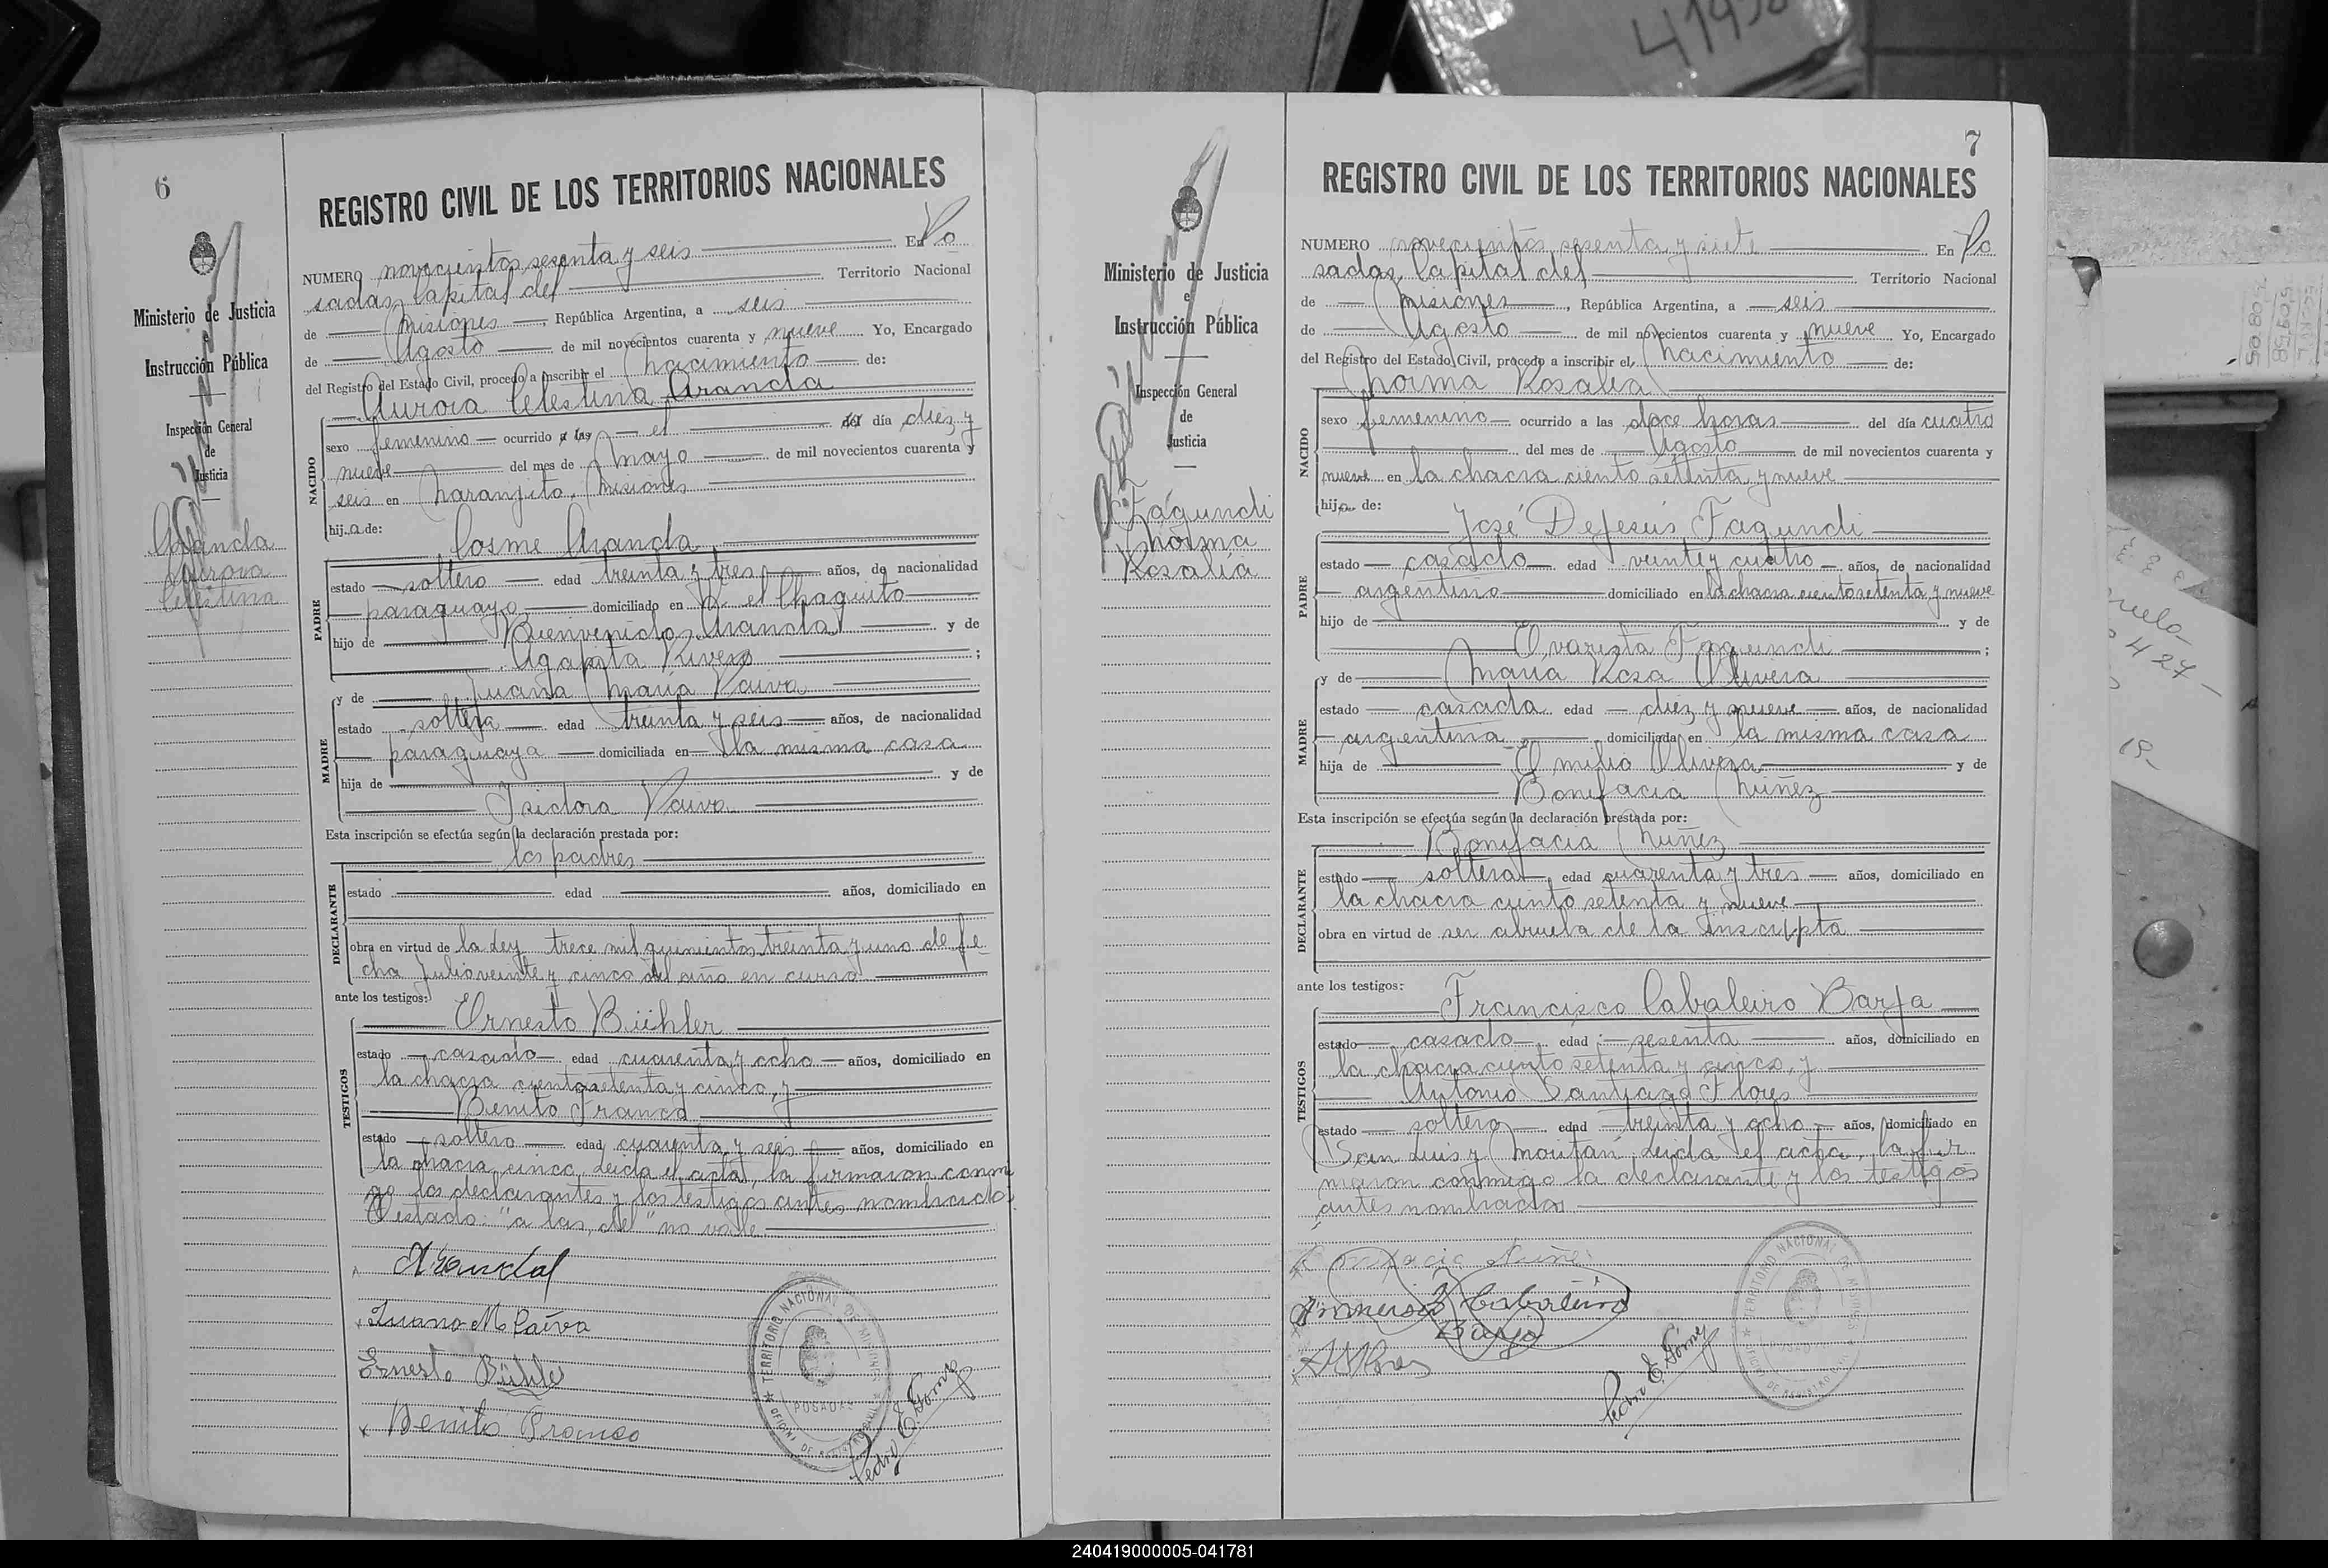 41950
6
REGISTRO CIVIL DE LOS TERRITORIOS NACIONALES
Ministerio de Justicia
e
Instrucción Pública
Inspección General
de
Justicia
Aranda
Aurora
Celestina
NUMERO novecientos sesenta y seis En Po
sadas, Capital del Territorio Nacional
de Misiones, República Argentina, a seis
de Agosto de mil novecientos cuarenta y nueve Yo, Encargado
del Registro del Estado Civil, procedo a inscribir el nacimiento de:
Aurora Celestina Aranda
NACIDO
sexo femenino ocurrido a las el del día diez y
nueve del mes de Mayo de mil novecientos cuarenta y
seis en Naranjito, Misiones
hija de:
PADRE
Cosme Aranda
estado soltero edad treinta y tres años, de nacionalidad
paraguayo domiciliado en el Chaquito
hijo de Bienvenido Aranda y de
Agapita Rivero ;
MADRE
y de Juana María Paiva
estado soltera edad treinta y seis años, de nacionalidad
paraguaya domiciliada en la misma casa
hija de y de
Isidora Paiva
Esta inscripción se efectúa según la declaración prestada por:
DECLARANTE
los padres
estado edad años, domiciliado en
obra en virtud de la Ley trece mil quinientos treinta y uno de fe-
cha Julio veinte y cinco del año en curso
ante los testigos:
TESTIGOS
Ernesto Bühler
estado casado edad cuarenta y ocho años, domiciliado en
la chacra ciento setenta y cinco, y
Benito Franco
estado soltero edad cuarenta y seis años, domiciliado en
la chacra cinco. Leida el acta, la firmaron conmi
go los declarantes y los testigos antes nombrados
Testado: "a las, del" no vale.
Aranda
Juana M. Paiva
Ernesto Bühler
Benito Franco
TERRITORIO NACIONAL DE MISIONES
POSADAS
OFICINA DE REGISTRO CIVIL
Pedro E. Gomez
7
REGISTRO CIVIL DE LOS TERRITORIOS NACIONALES
Ministerio de Justicia
e
Instrucción Pública
Inspección General
de
Justicia
Fagundi
Norma
Rosalía
NUMERO novecientos sesenta y siete En Po
sadas, Capital del Territorio Nacional
de Misiones, República Argentina, a seis
de Agosto de mil novecientos cuarenta y nueve Yo, Encargado
del Registro del Estado Civil, procedo a inscribir el nacimiento de:
Norma Rosalia
NACIDO
sexo femenino ocurrido a las doce horas del día cuatro
del mes de Agosto de mil novecientos cuarenta y
nueve en la chacra ciento setenta y nueve
hija de:
PADRE
José DeJesús Fagundi
estado casado edad veinte y cuatro años, de nacionalidad
argentino domiciliado en la chacra ciento setenta y nueve
hijo de y de
Evarista Fagundi ;
MADRE
y de María Rosa Olivera
estado casada edad diez y nueve años, de nacionalidad
argentina domiciliada en la misma casa
hija de Emilio Olivera y de
Bonifacia Nuñez
Esta inscripción se efectúa según la declaración prestada por:
DECLARANTE
Bonifacia Nuñez
estado soltera edad cuarenta y tres años, domiciliado en
la chacra ciento setenta y nueve
obra en virtud de ser abuela de la inscripta
ante los testigos:
TESTIGOS
Francisco Cabaleiro Barja
estado casado edad sesenta años, domiciliado en
la chacra ciento setenta y cinco, y
Antonio Santiago Flores
estado soltero edad treinta y ocho años, domiciliado en
San Luis y Moritán. Leida el acta, la fir
maron conmigo la declarante y los testigos
antes nombrados
Bonifacia Nuñe
Francisco Cabaleiro
Barja
A S Flores
Pedro E. Gomez
TERRITORIO NACIONAL DE MISIONES
OFICINA DE REGISTRO CIVIL
424
19-
240419000005-041781